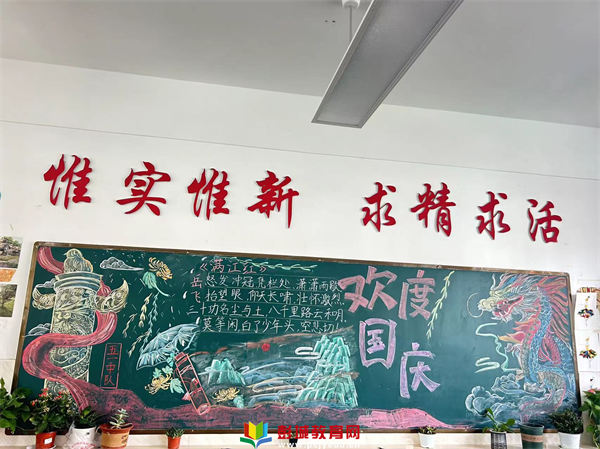 惟实惟新 求精求活
《满江红》
岳 怒发冲冠,凭栏处、潇潇雨歇
飞 抬望眼,仰天长啸,壮怀激烈
三十功名尘与土,八千里路云和月
莫等闲白了少年头,空悲切!
欢度
国庆
教育网